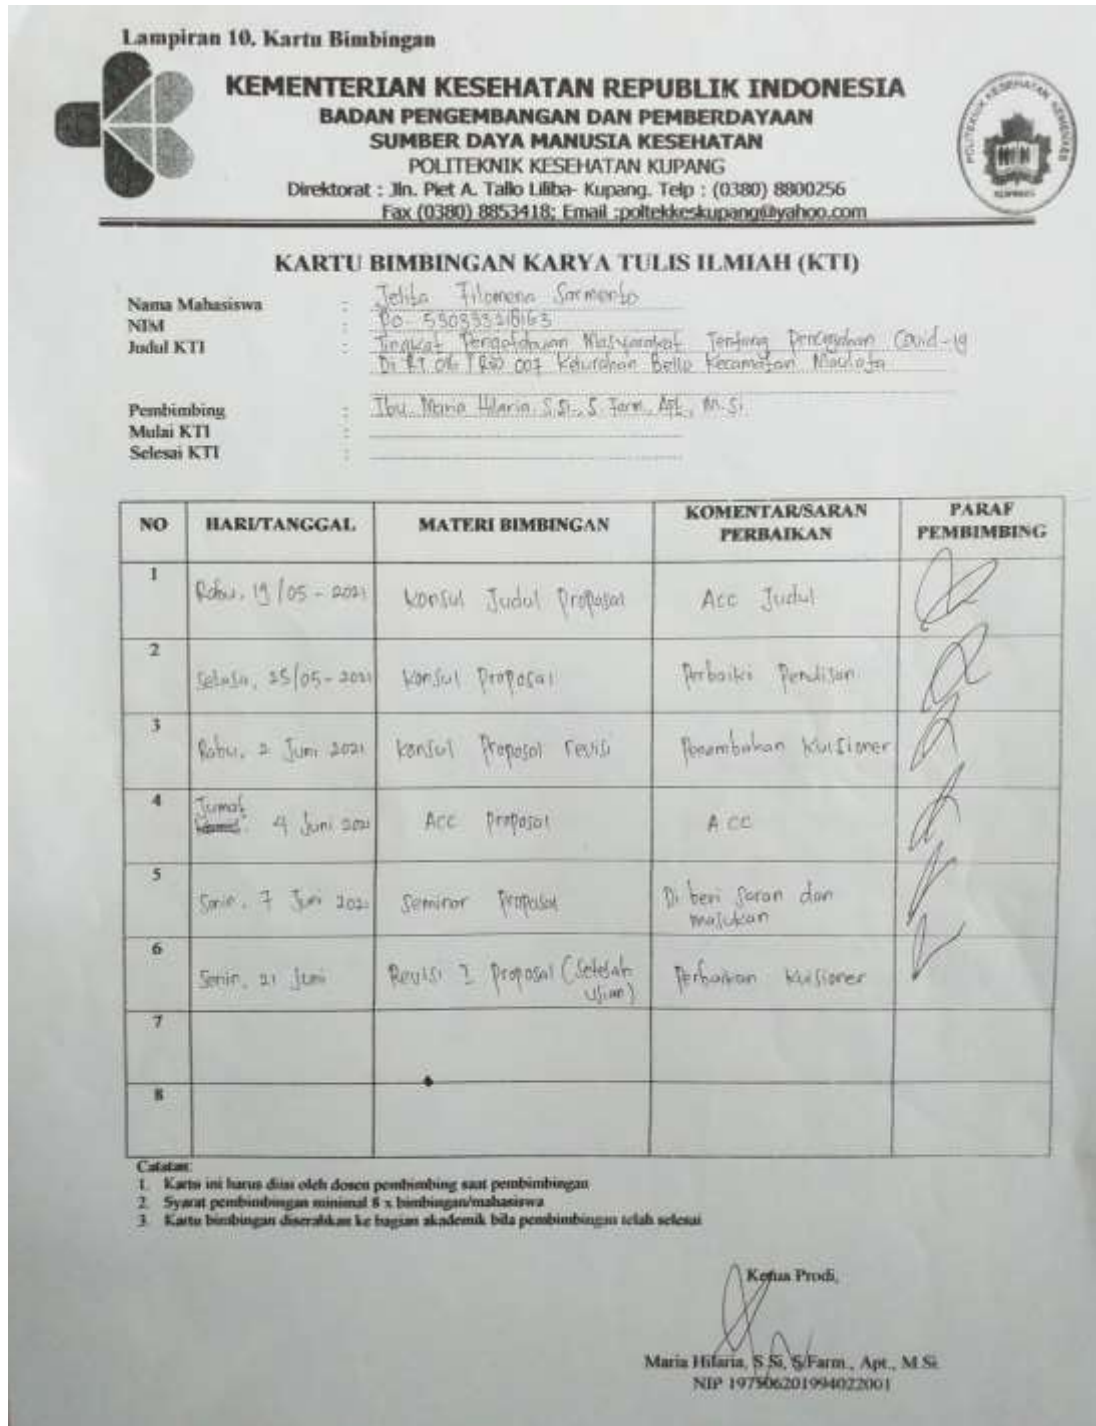 Lampiran 10. Kartu Bimbingan
KEMENTERIAN KESEHATAN REPUBLIK INDONESIA
BADAN PENGEMBANGAN DAN PEMBERDAYAAN
SUMBER DAYA MANUSIA KESEHATAN
POLITEKNIK KESEHATAN KUPANG
Direktorat : Jln. Piet A. Tallo Liliba- Kupang. Telp : (0380) 8800256
Fax (0380) 8853418; Email :poltekkeskupang@yahoo.com
KARTU BIMBINGAN KARYA TULIS ILMIAH (KTI)
Nama Mahasiswa : Jelita Filomena Sarmento
NIM : PO. 530333218163
Judul KTI : Tingkat Pengetahuan Masyarakat Tentang Pencegahan Covid-19
Di RT 016 / RW 007 Kelurahan Bello Kecamatan Maulafa
Pembimbing : Ibu Maria Hilaria S.Si., S. Farm, Apt., M.Si
Mulai KTI :
Selesai KTI :
NO HARI/TANGGAL MATERI BIMBINGAN KOMENTAR/SARAN PERBAIKAN PARAF PEMBIMBING
1 Rabu, 19/05-2021 Konsul Judul Proposal Acc Judul
2 Selasa, 25/05-2021 Konsul Proposal Perbaiki Penulisan
3 Rabu, 2 Juni 2021 Konsul Proposal revisi Penambahan Kuisioner
4 Jumat 4 Juni 2021 Acc Proposal ACC
5 Senin, 7 Juni 2021 Seminar Proposal Di beri saran dan masukan
6 Senin, 21 Juni Revisi Proposal (Setelah Ujian) Perbaikan Kuisioner
7
8
Catatan:
1. Kartu ini harus diisi oleh dosen pembimbing saat pembimbingan
2. Syarat pembimbingan minimal 8 x bimbingan/mahasiswa
3. Kartu bimbingan diserahkan ke bagian akademik bila pembimbingan telah selesai
Ketua Prodi,
Maria Hilaria, S.Si, S.Farm., Apt., M.Si
NIP 197506201994022001